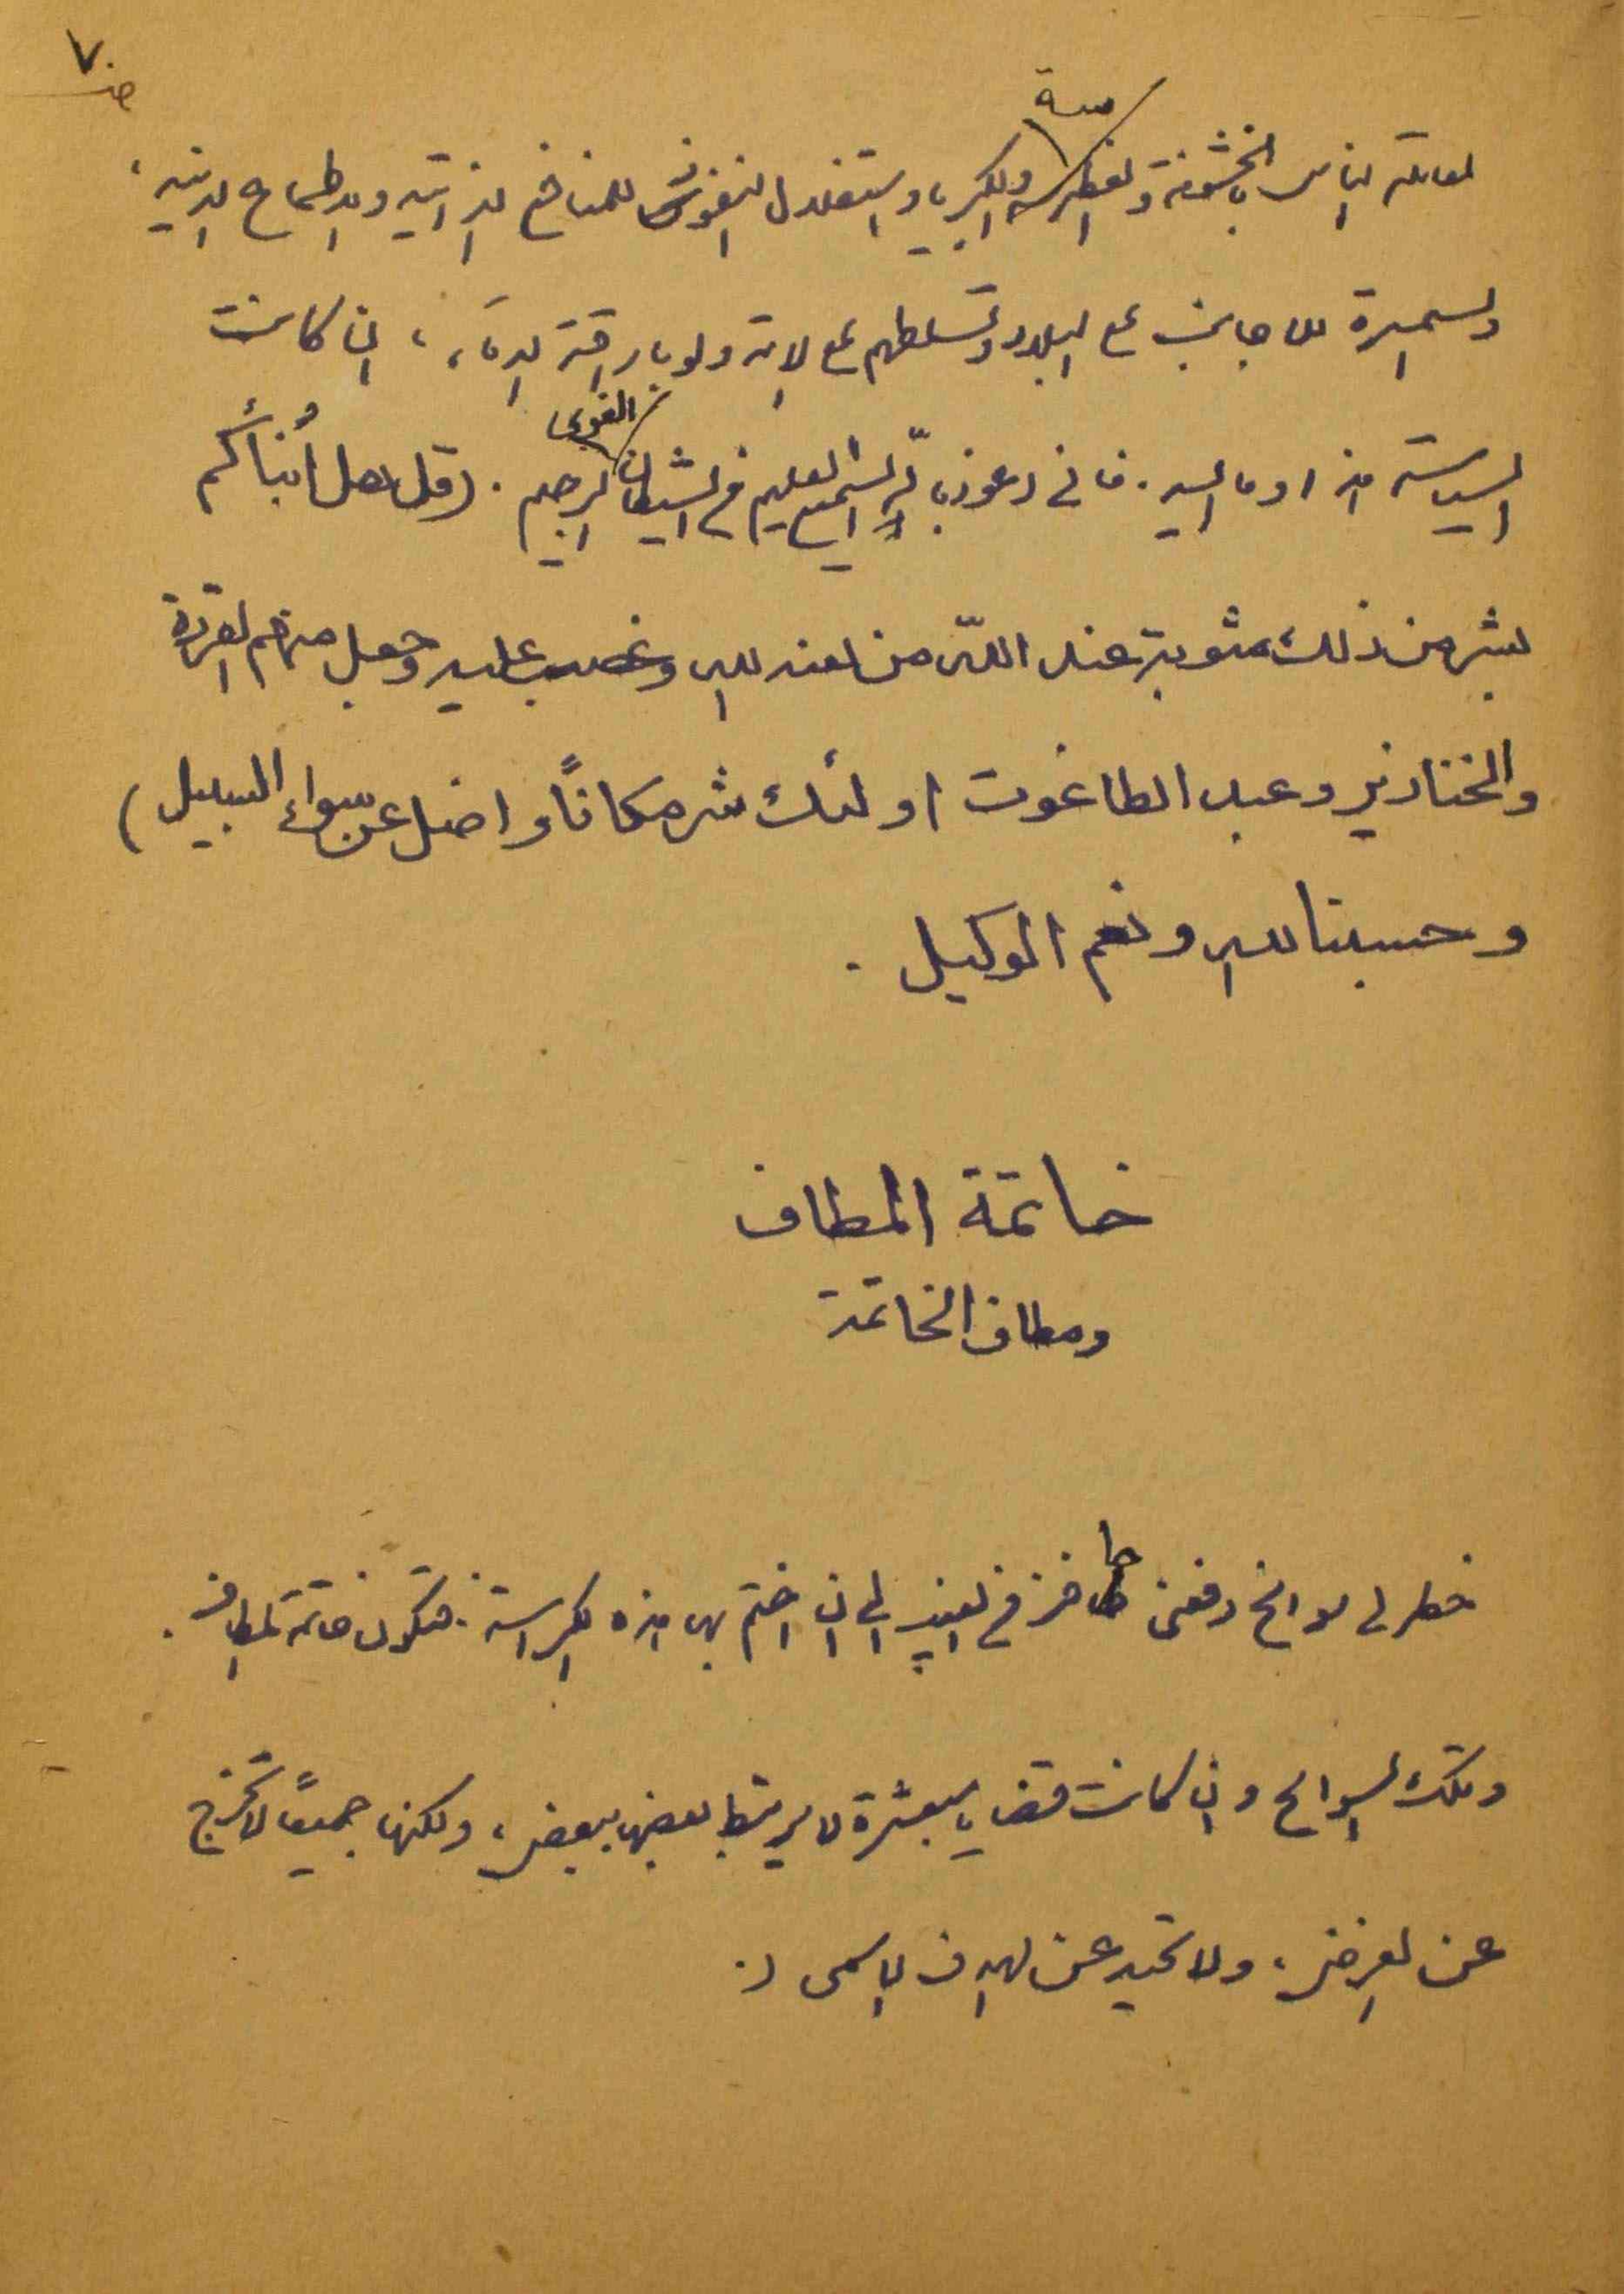 ص ٧٠
معاملة الناس بالخشونة والغطرسة والكبرياء واستغلال النفوذ للمنافع الذاتية والاطماع الدنية ،
والسمسرة للاجانب على البلاد وتسلطهم على الامة ولو باراقة الدماء ، ان كانت
السياسة هذا وما اليه . فاني اعوذ بالله السميع العليم من الشيطان الغوي الرجيم . (قل هل أُنبأكم
بشر من ذلك مثوبة عند اللّه من لعنه الله وغضب عليه وجعل منهم القردة
والخنازير وعبد الطاغوت اولئك شر مكاناً واضل عن سواء السبيل)
وحسبنا الله ونعم الوكيل .
خاتمة المطاف
ومطاف الخاتمة
خطر لي سوانح دفعني حافز في نفسي الى ان اختم بها هذه الكراسة . فتكون خاتمة المطاف .
وتلك السوانح وان كانت قضايا مبعثرة لا يرتبط بعضها ببعض ، ولكنها جميعاً لا تخرج
عن الغرض ، ولا تحيد عن الهدف الاسمى